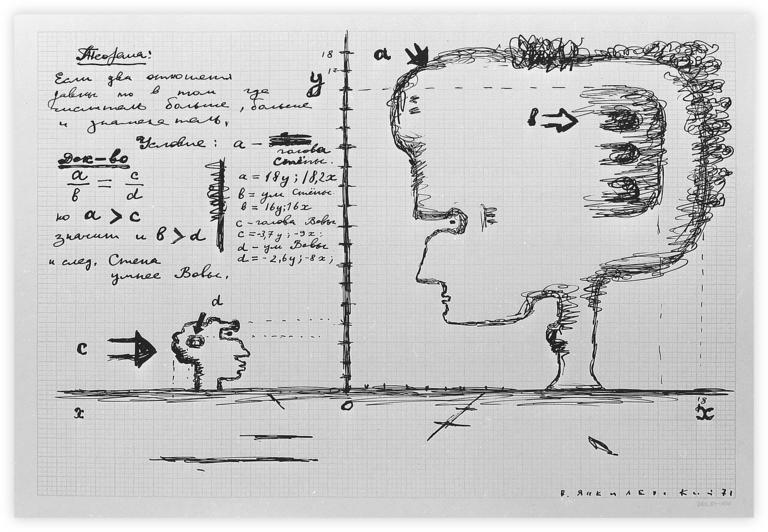 Теорема:
Если два отношения
равны то в том где
числитель больше, больше
и знаменатель.
Условие: а –
голова
Стёпы.
Док-во
а/в = с/d
но а > с
значит и в > d
и след. Степа
умнее Вовы.
а = 18у; 18,2х
в = ум Стёпы
в = 16у; 16х
с – голова Вовы
с = -3,7у; -9х.
d – ум Вовы
d = -2,6у; -8х;
18
17
у
а
в
d
с
х
0
18
х
В. Янкилевский 71